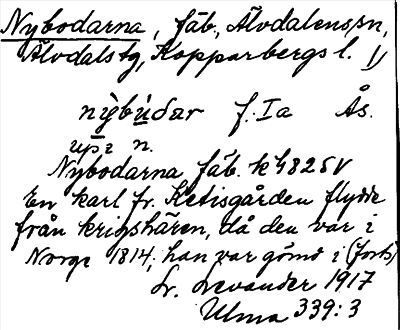 Nybodarna, fäb., Älvdalens sn,
Älvdals tg, Kopparbergs l. 1)
nỳbúdar f. Ia Ås.
upz n.
Nybodarna fäb. k4825V
En karl fr. Ketisgården flydde
från krigshären, då den var i
Norge 1814; han var gömd i (forts)
L. Levander 1917
Ulma 339:3